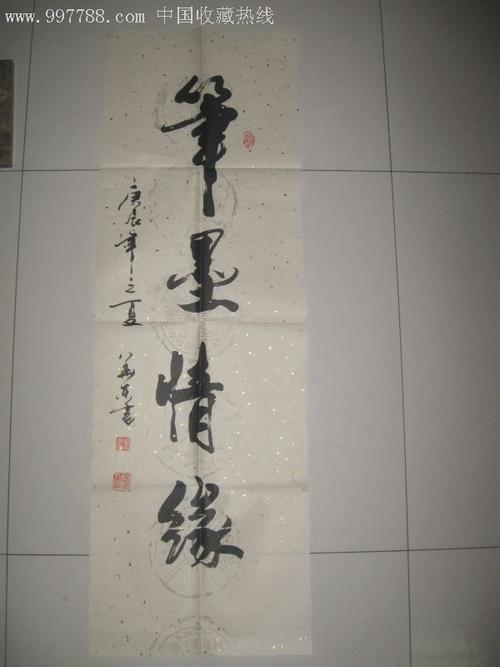 www.997788.com 中国收藏热线
筆墨情緣
庚辰年之夏